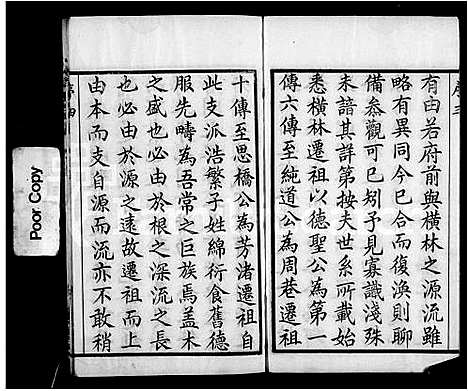 序三
有由若府前與橫林之源流雖
略有異同今已合而復渙則聊
備參觀可已矧予見寡識淺殊
未諳其詳第按夫世系所載始
悉橫林遷祖以德聖公為第一
傳六傳至純道公為周巷遷祖
十傳至思橋公為芳渚遷祖自
此支派浩繁子姓綿衍食舊德
服先疇為吾常之巨族焉蓋木
之盛也必由於根之深流之長
也必由於源之遠故遷祖而上
由本而支自源而流亦不敢稍
序四
Poor Copy